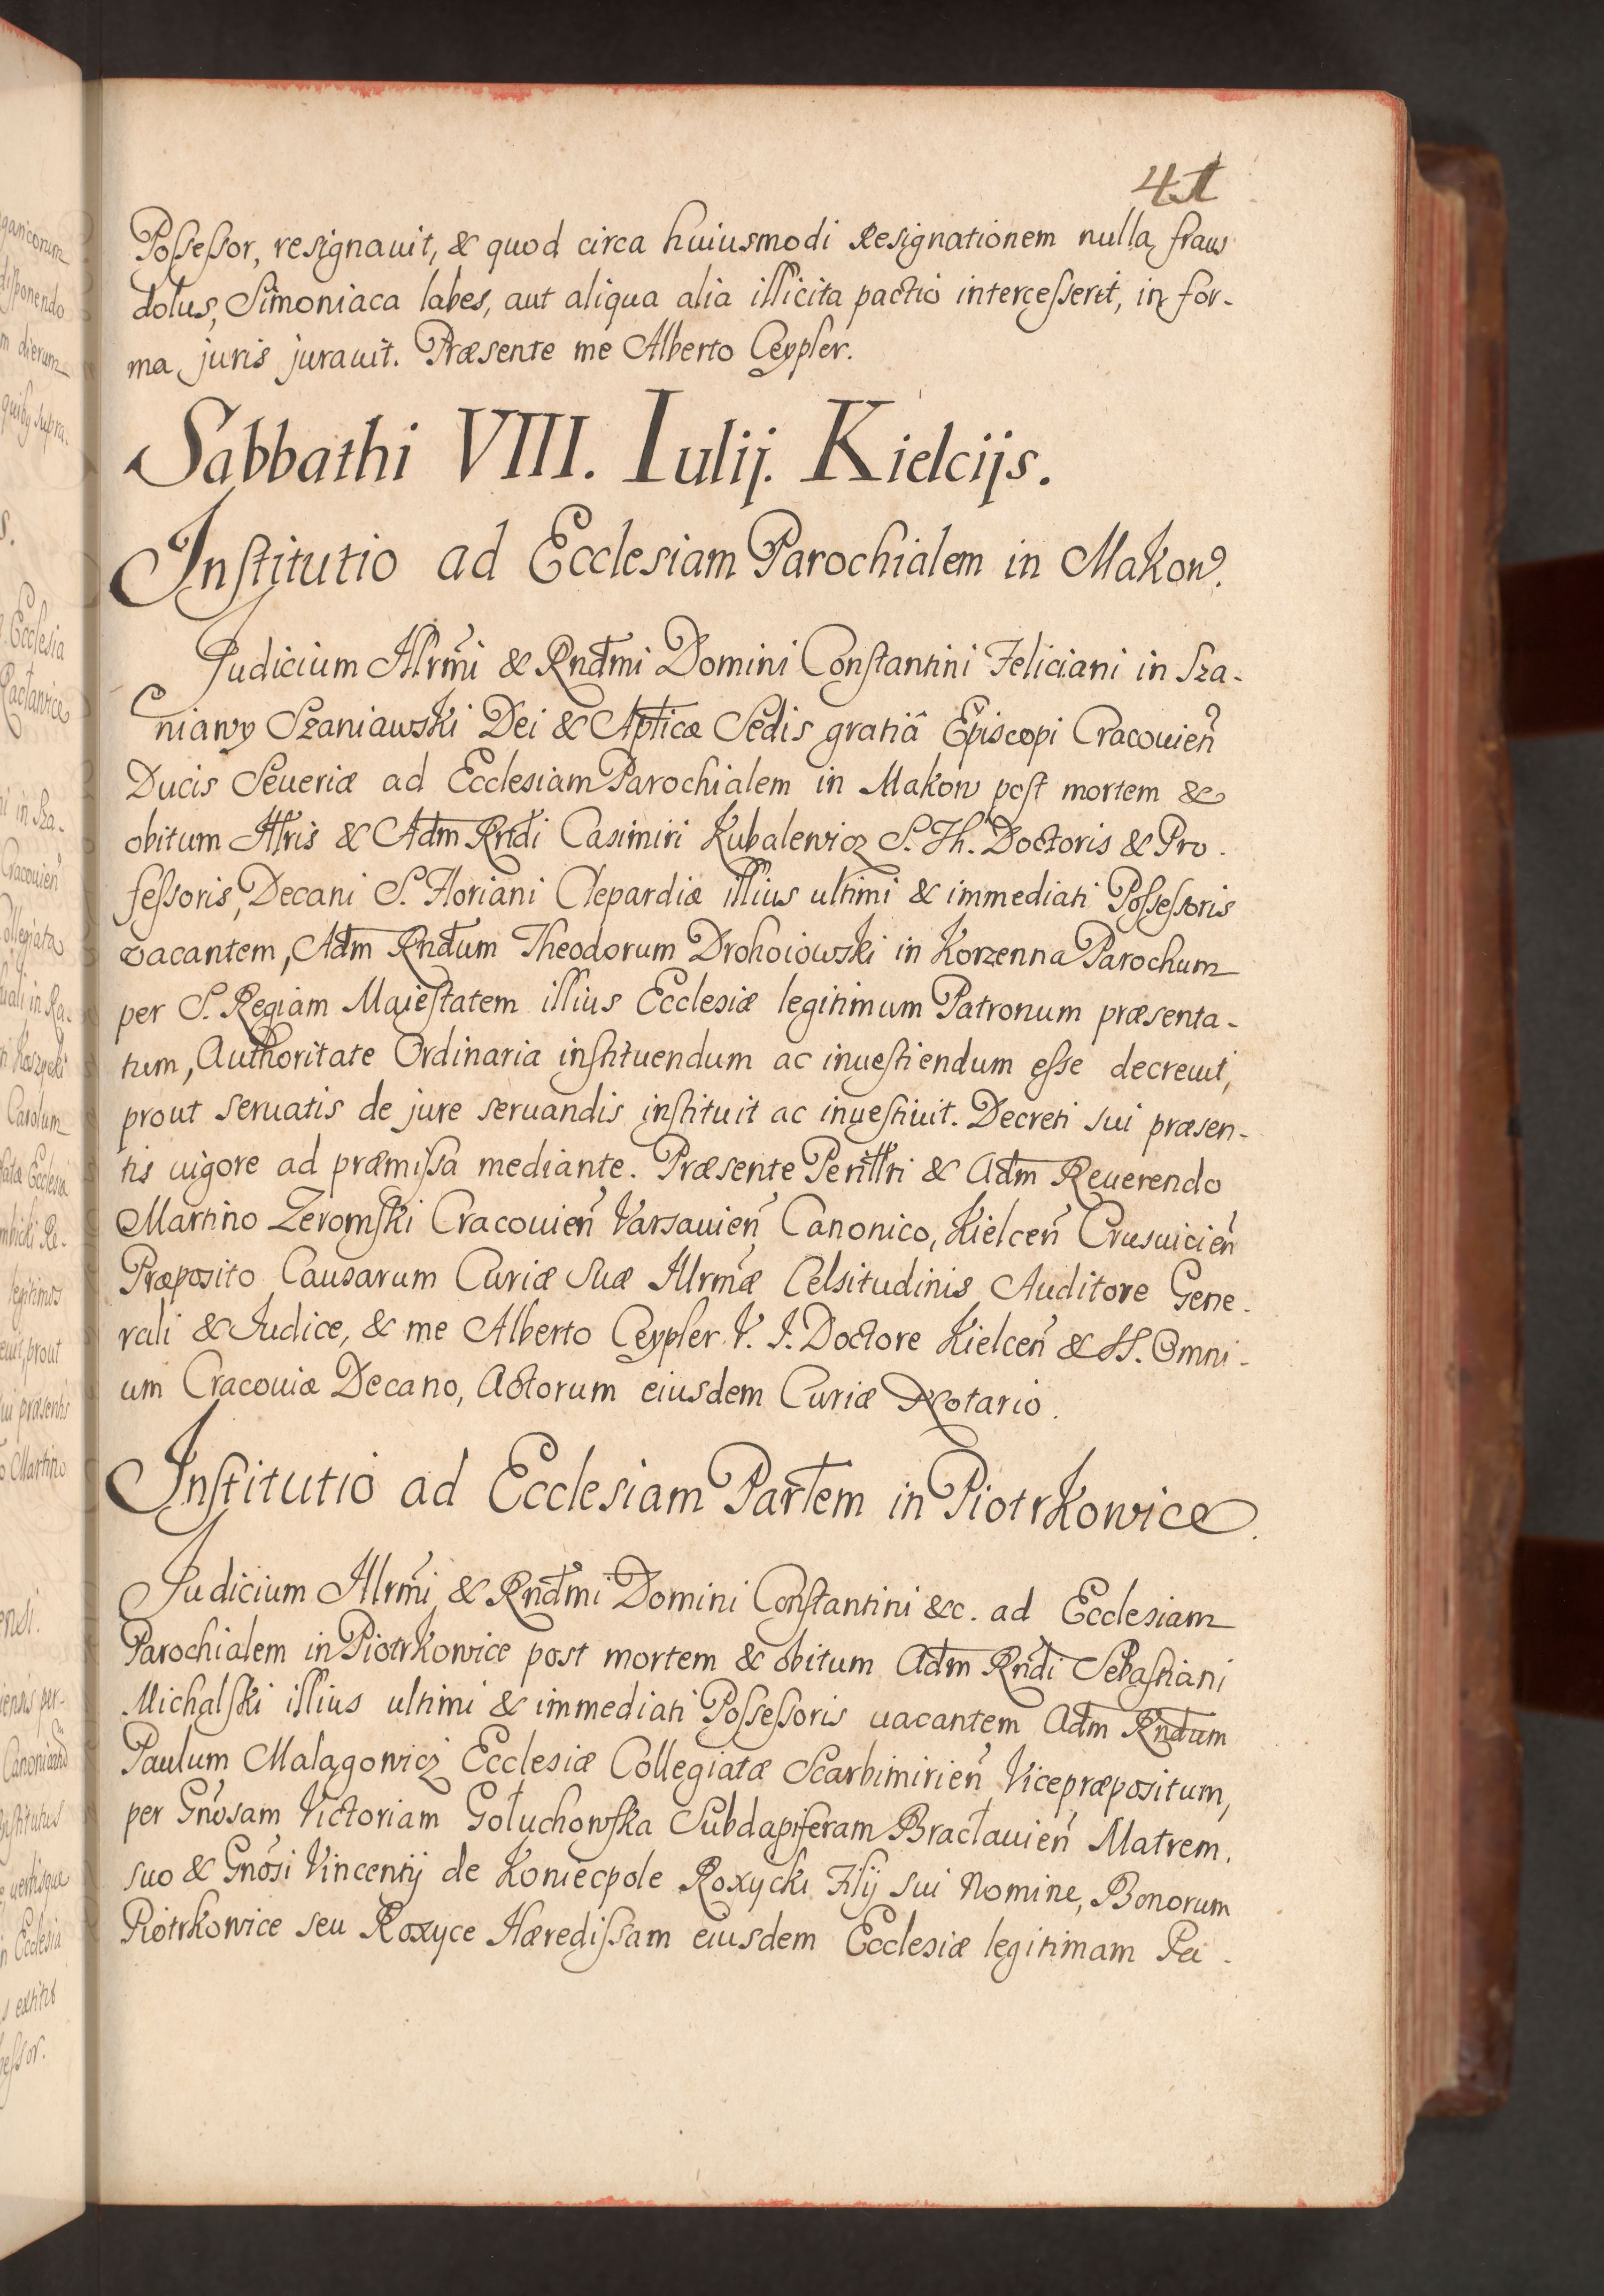 41
Possessor, resignauit, & quod circa huiusmodi Resignationem nulla fraus
dolus, Simoniaca labes, aut aliqua alia illicita pactio intercesserit, in for-
ma juris jurauit. Præsente me Alberto Ceypler.
Sabbathi VIII. Iulij. Kielcijs.
Institutio ad Ecclesiam Parochialem in Makow.
Judicium Illrmi & Rndmi Domini Constantini Feliciani in Sza-
niawy Szaniawski Dei & Aplicæ Sedis gratiâ Episcopi Cracouien
Ducis Seueriæ ad Ecclesiam Parochialem in Makow post mortem &
obitum Illris & Adm Rndi Casimiri Kubalewicz S. Th. Doctoris & Pro-
fessoris, Decani S. Floriani Clepardiæ illius ultimi & immediati Possessoris
vacantem, Adm Rndum Theodorum Drohoiowski in Korzenna Parochum
per S. Regiam Maiestatem illius Ecclesiæ legitimum Patronum præsenta-
tum, Authoritate Ordinaria instituendum ac inuestiendum esse decreuit,
prout seruatis de jure seruandis instituit ac inuestiuit. Decreti sui præsen-
tis uigore ad præmissa mediante. Præsente Perillri & Adm Reuerendo
Martino Zeromski Cracouien Varsauien Canonico, Kielcen Crusuicien
Præposito Causarum Curiæ Suæ Illrmæ Celsitudinis Auditore Gene-
rali & Judice, & me Alberto Ceypler V. I. Doctore Kielcen & SS. Omni-
um Cracouiæ Decano, Actorum eiusdem Curiæ Notario.
Institutio ad Ecclesiam Partem in Piotrkowice.
Judicium Illrmi & Rndmi Domini Constantini &c. ad Ecclesiam
Parochialem in Piotrkowice post mortem & obitum Adm Rndi Sebastiani
Michalski illius ultimi & immediati Possessoris uacantem Adm Rndum
Paulum Malagowicz Ecclesiæ Collegiatæ Scarbimirien Vicepræpositum,
per Gnosam Victoriam Gołuchowska Subdapiferam Bracłauien Matrem.
suo & Gnosi Vincentij de Koniecpole Roxycki Filij sui Nomine, Bonorum
Piotrkowice seu Roxyce Hæredissam eiusdem Ecclesiæ legitimam Pa-